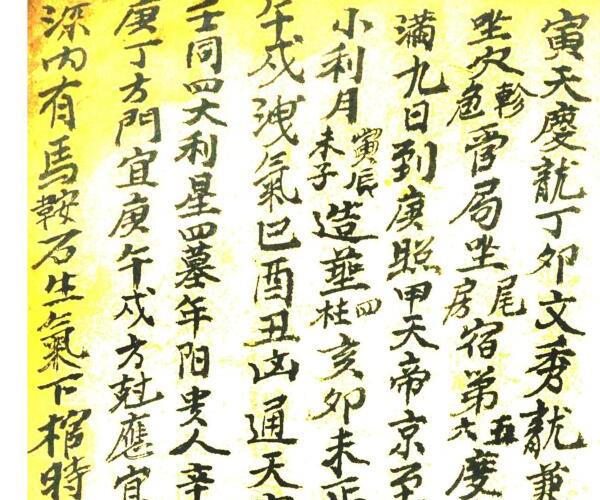 寅天慶龍丁卯文秀龍兼
坐穴軫危管局坐尾房宿第五六度
滿九日到庚照甲天帝京
小利月寅辰未子造葬四柱亥卯未正
午戌洩氣巳酉丑凶通天
壬同四大利星四墓年阳贵人辛
庚丁方門宜庚午戌方尅應宜
深内有馬鞍石生氣下棺時